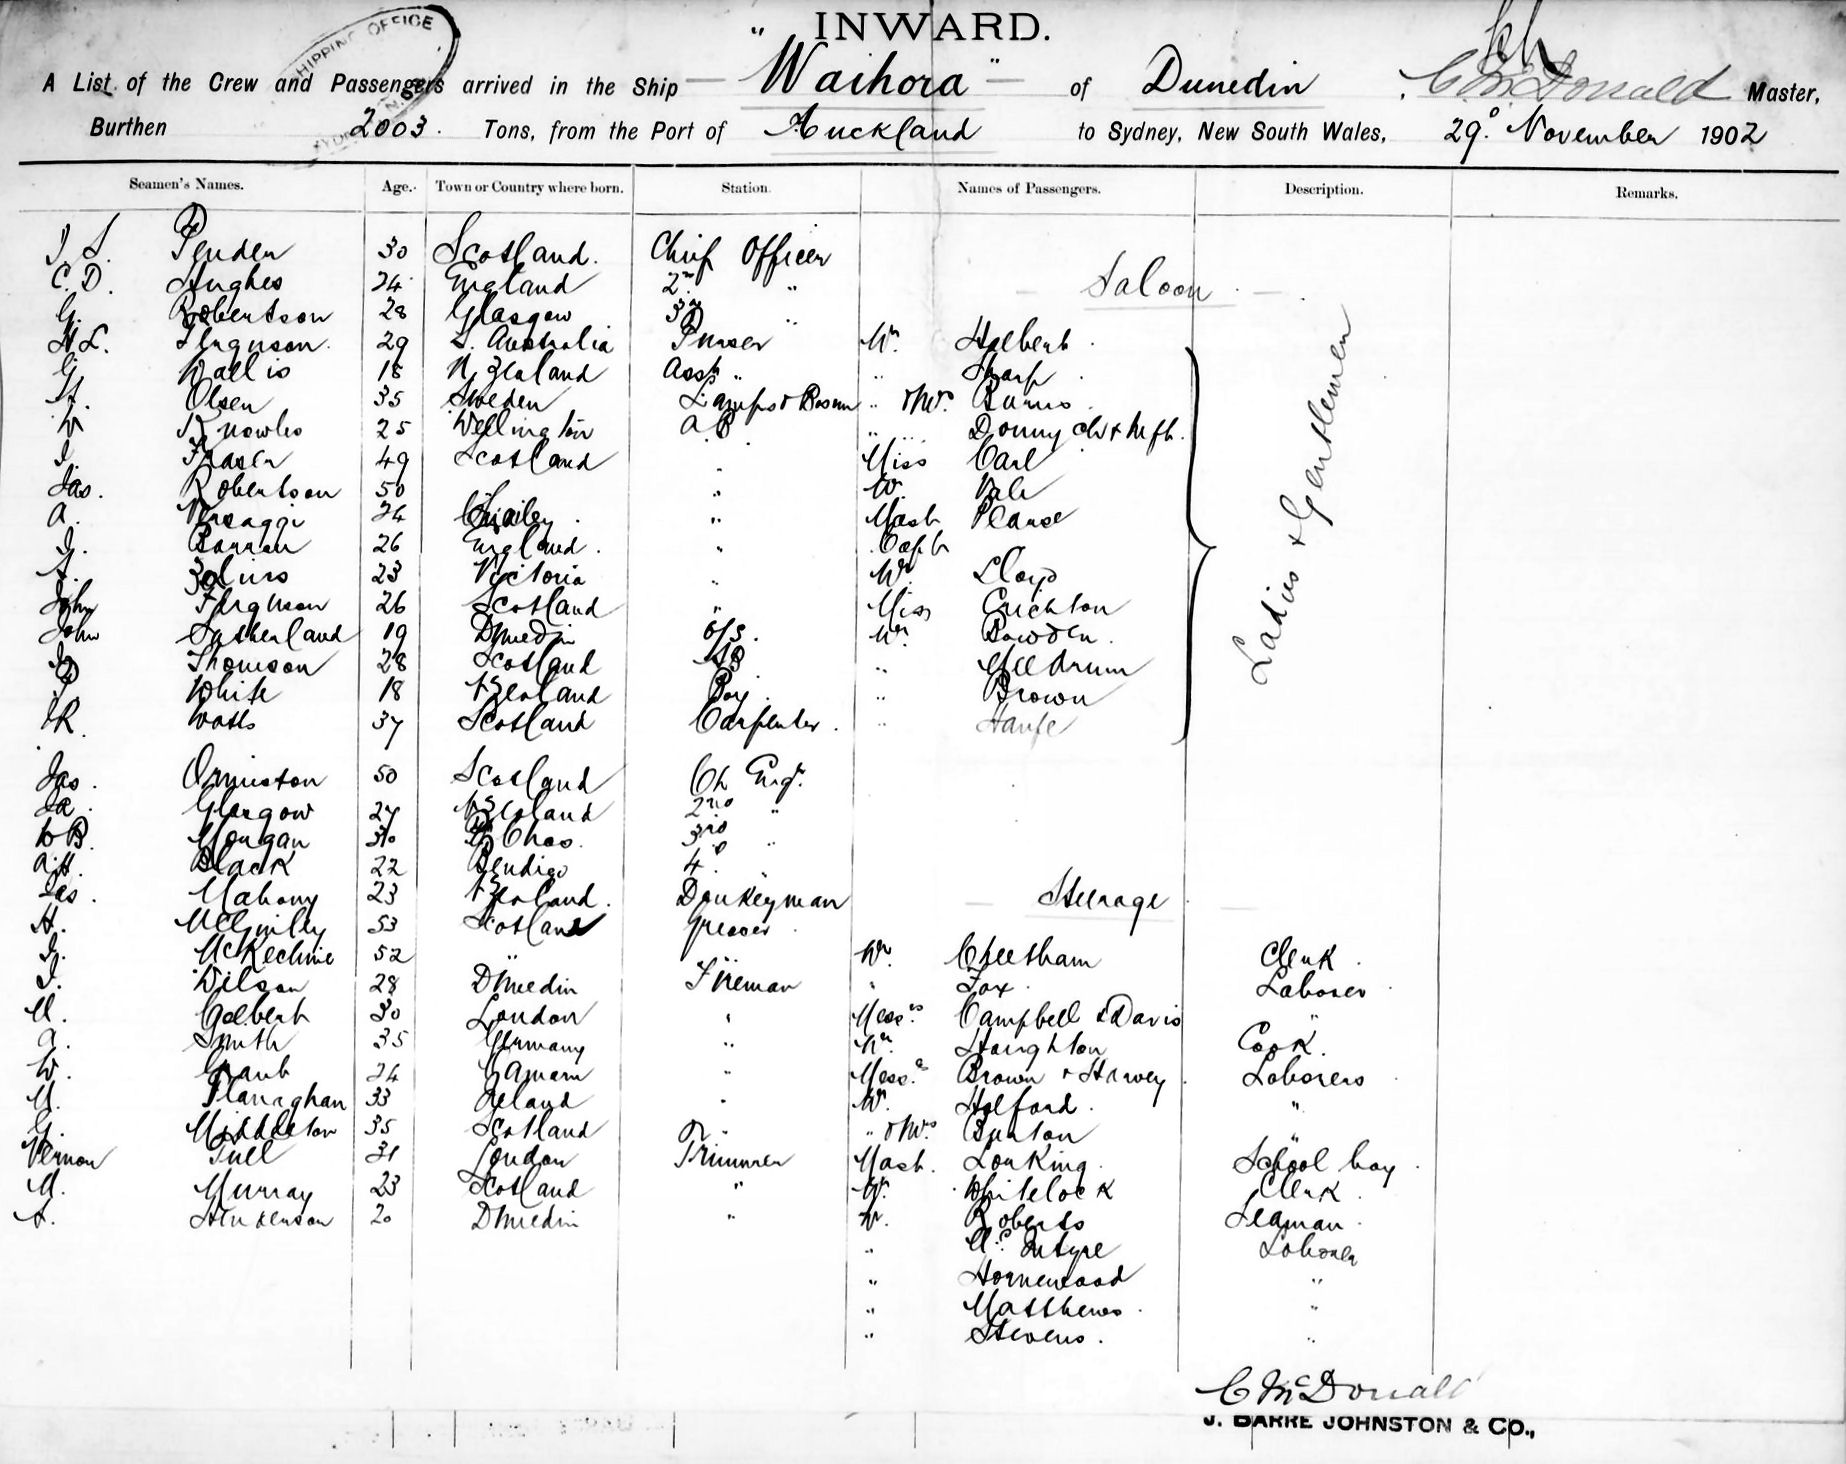 INWARD.
A List of the Crew and Passengers arrived in the Ship "Waihora" of Dunedin, C McDonald Master,
Burthen 2003. Tons, from the Port of Auckland to Sydney, New South Wales, 29° November 1902
SHIPPING OFFICE
Seamen's Names. Age. Town or Country where born. Station. Names of Passengers. Description. Remarks.
30 Scotland. Chief Officer
C. D. Hughes 24 England 2nd "
Saloon
G. Robertson 28 Glasgow 3rd "
Ferguson 29 S. Australia Purser Mr. Holbert
G Wallis 18 N Zealand Asst " " Sharp
Olsen 35 Sweden Lamps & Bosun " & Mrs. Burns
W Knowles 25 Wellington AB " " Donny
Fraser 49 Scotland " Miss Carl
Jas. Robertson 50 " " Mr. Vale
A. 24 " Mast Pearse
26 England. " Capt
23 Victoria " Mr Lloyd
John Ferguson 26 Scotland " Miss Crichton
John Sutherland 19 Dunedin O/S. Mr. Bowden.
Thomson 28 Scotland AB " Meldrum
White 18 N Zealand Boy " Brown
R. Watts 37 Scotland Carpenter. "
Ladies & Gentlemen
Jas. Ormiston 50 Scotland Ch Engr.
Glasgow 27 N Zealand 2nd "
W B. Morgan 30 3rd "
A H. Black 22 Bendigo 4
Jas. Mahony 23 N Zealand. Donkeyman
Steerage
H. McGinley 53 Scotland Greaser
McKechnie 52 " " Mr. Cheetham Clerk
Wilson 28 Dunedin Fireman " Fox Laborer
M. Gilbert 30 London " Messrs Campbell & Davis "
A. Smith 35 Germany " Mr. Houghton Cook.
W. Grant 24 " Messrs Brown & Harvey Laborers
M. Flanaghan 33 Ireland " Mr. Holford "
G. Middleton 35 Scotland " " & Mrs. Burton "
Vernon Tuel 31 London Trimmer Mast. Lou King School boy
M. Murray 23 Scotland " Mr. Whitelock Clerk
A. Henderson 20 Dunedin " Mr. Roberts Seaman
" McIntyre Laborer
" Homewood "
" Matthews "
" Stevens "
C McDonald
J. BARRE JOHNSTON & CO.,